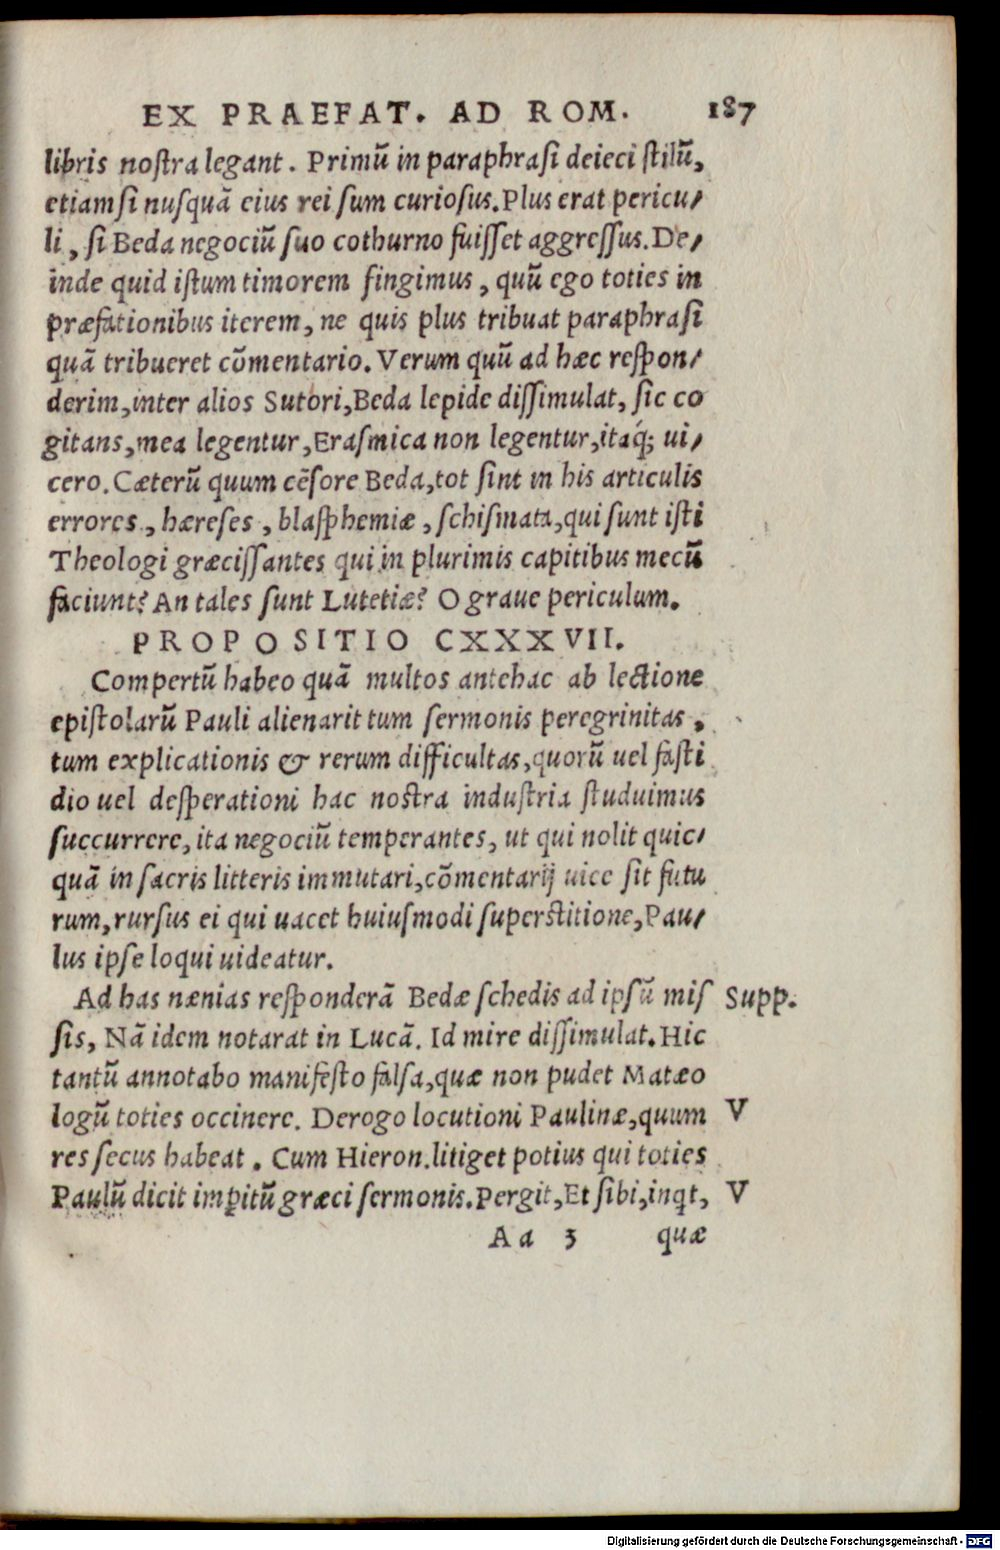 EX PRAEFAT. AD ROM. 187
libris nostra legant. Primũ in paraphrasi deieci stilũ,
etiamsi nusquã eius rei sum curiosus. Plus erat pericu/
li, si Beda negociũ suo cothurno fuisset aggressus. De/
inde quid istum timorem fingimus, quũ ego toties in
præfationibus iterem, ne quis plus tribuat paraphrasi
quã tribueret cõmentario. Verum quũ ad hæc respon/
derim, inter alios Sutori, Beda lepide dissimulat, sic co
gitans, mea legentur, Erasmica non legentur, itaq; ui/
cero. Cæterũ quum cẽsore Beda, tot sint in his articulis
errores, hæreses, blasphemiæ, schismata, qui sunt isti
Theologi græcissantes qui in plurimis capitibus mecũ
faciunt? An tales sunt Lutetiæ? O graue periculum.
PROPOSITIO CXXXVII.
Compertũ habeo quã multos antehac ab lectione
epistolarũ Pauli alienarit tum sermonis peregrinitas,
tum explicationis & rerum difficultas, quorũ uel fasti
dio uel desperationi hac nostra industria studuimus
succurrere, ita negociũ temperantes, ut qui nolit quic/
quã in sacris litteris immutari, cõmentarij uice sit futu
rum, rursus ei qui uacet huiusmodi superstitione, Pau/
lus ipse loqui uideatur.
Ad has nænias responderã Bedæ schedis ad ipsũ mis Supp.
sis, Nã idem notarat in Lucã. Id mire dissimulat. Hic
tantũ annotabo manifesto falsa, quæ non pudet Matæo
logũ toties occinere. Derogo locutioni Paulinæ, quum V
res secus habeat. Cum Hieron. litiget potius qui toties
Paulũ dicit imꝑitũ græci sermonis. Pergit, Et sibi, inqt, V
Aa 3 quæ
Digitalisierung gefördert durch die Deutsche Forschungsgemeinschaft - DFG